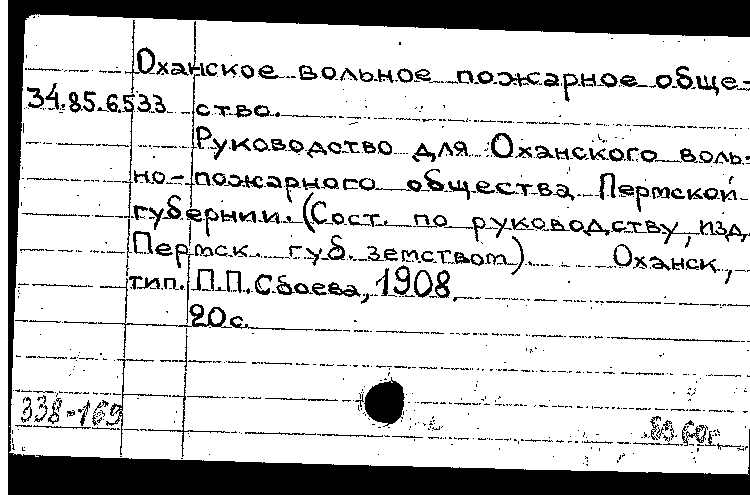 Оханское вольное пожарное обще-
34.85.6533 ство.
Руководство для Оханского воль-
но-пожарного общества Пермской
губернии. (Сост. по руководству, изд.
Пермск. губ. земством). Оханск,
тип. П.П.Сбоева, 1908.
20 с.
338-169